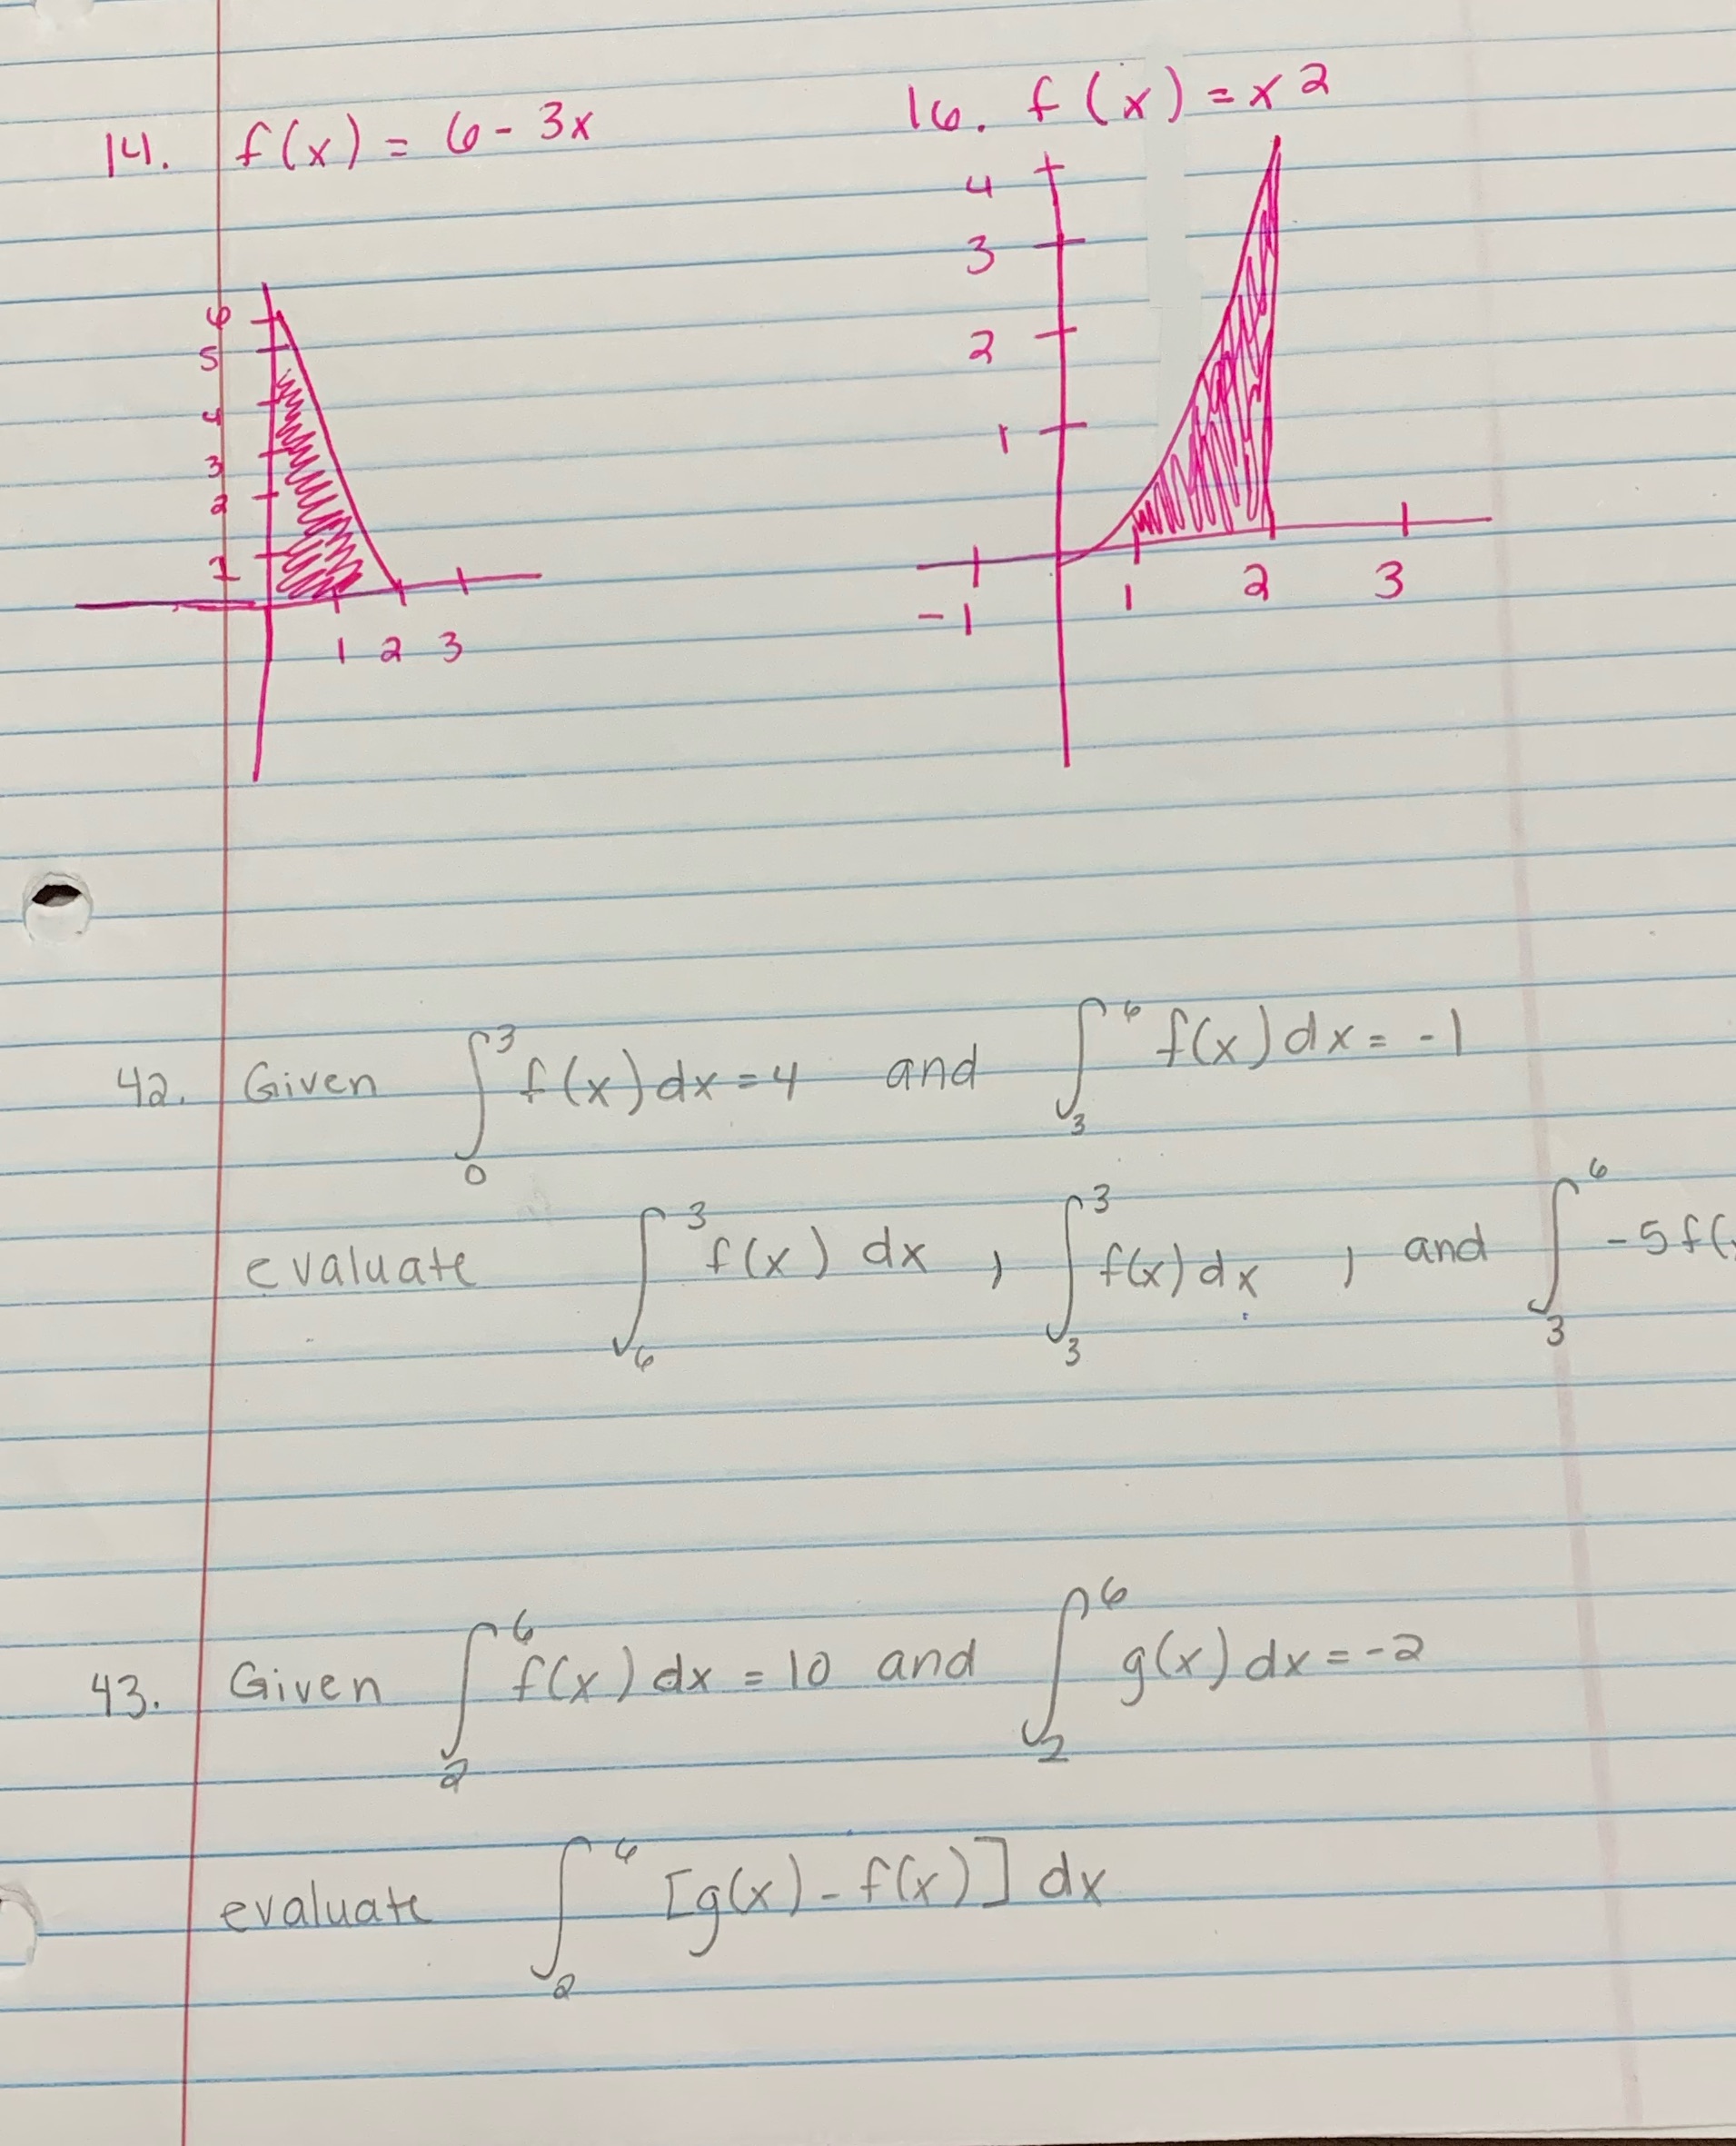 14. f(x) = 6 - 3x
6
5
4
3
2
1
1 2 3
16. f(x) = x 2
4
3
2
1
-1 1 2 3
42. Given ∫₀³ f(x) dx = 4 and ∫₃⁶ f(x) dx = -1
evaluate ∫₆³ f(x) dx , ∫₃³ f(x) dx , and ∫₃⁶ -5f(
43. Given ∫₂⁶ f(x) dx = 10 and ∫₂⁶ g(x) dx = -2
evaluate ∫₂⁶ [g(x) - f(x)] dx